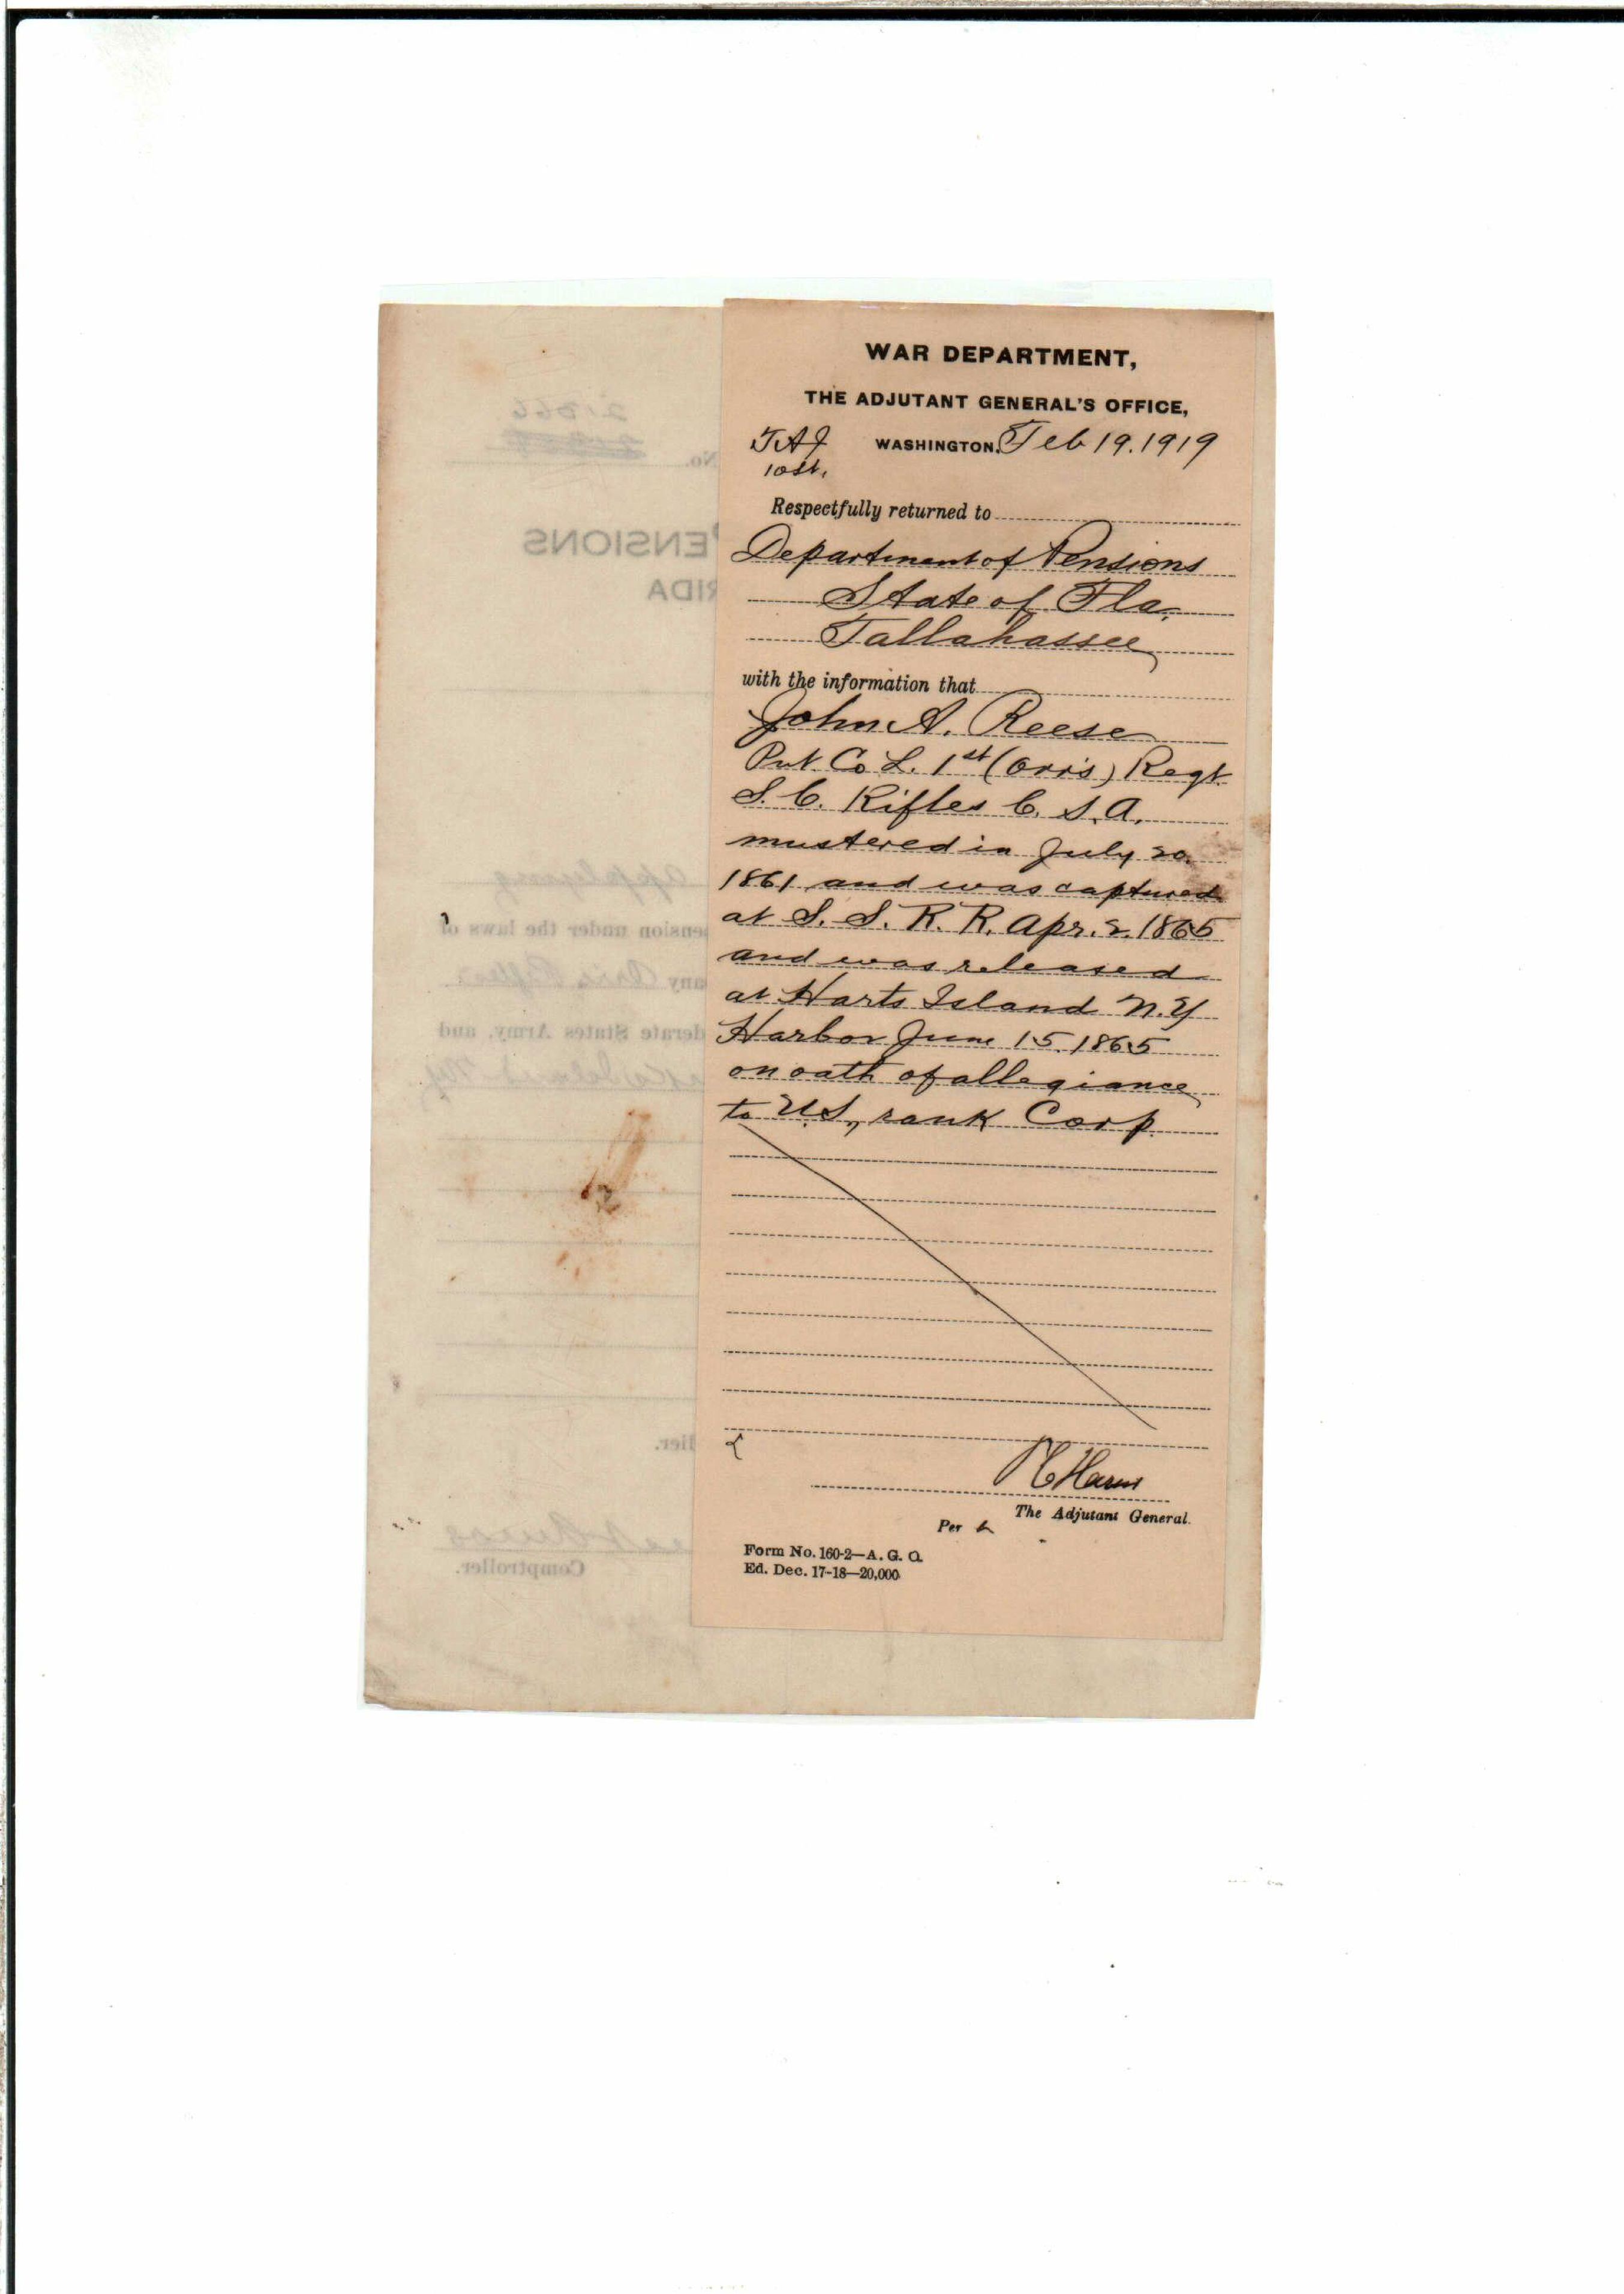 WAR DEPARTMENT,
THE ADJUTANT GENERAL'S OFFICE,
WASHINGTON, Feb 19. 1919
Respectfully returned to
Department of Pensions
State of Fla.
Tallahassee
with the information that
John A. Reese
Pvt. Co L. 1st (Orr's) Regt.
S. C. Rifles C. S. A.
mustered in July 20.
1861 and was captured
at S. S. R. R. Apr. 2. 1865
and was released
at Harts Island N. Y
Harbor June 15. 1865
on oath of allegiance
to U.S., rank Corp.
The Adjutant General.
Per
Form No. 160-2—A. G. O.
Ed. Dec. 17-18—20,000
No.
PENSIONS
RIDA
applying
ension under the laws of
any
derate States Army, and
ller.
Comptroller.